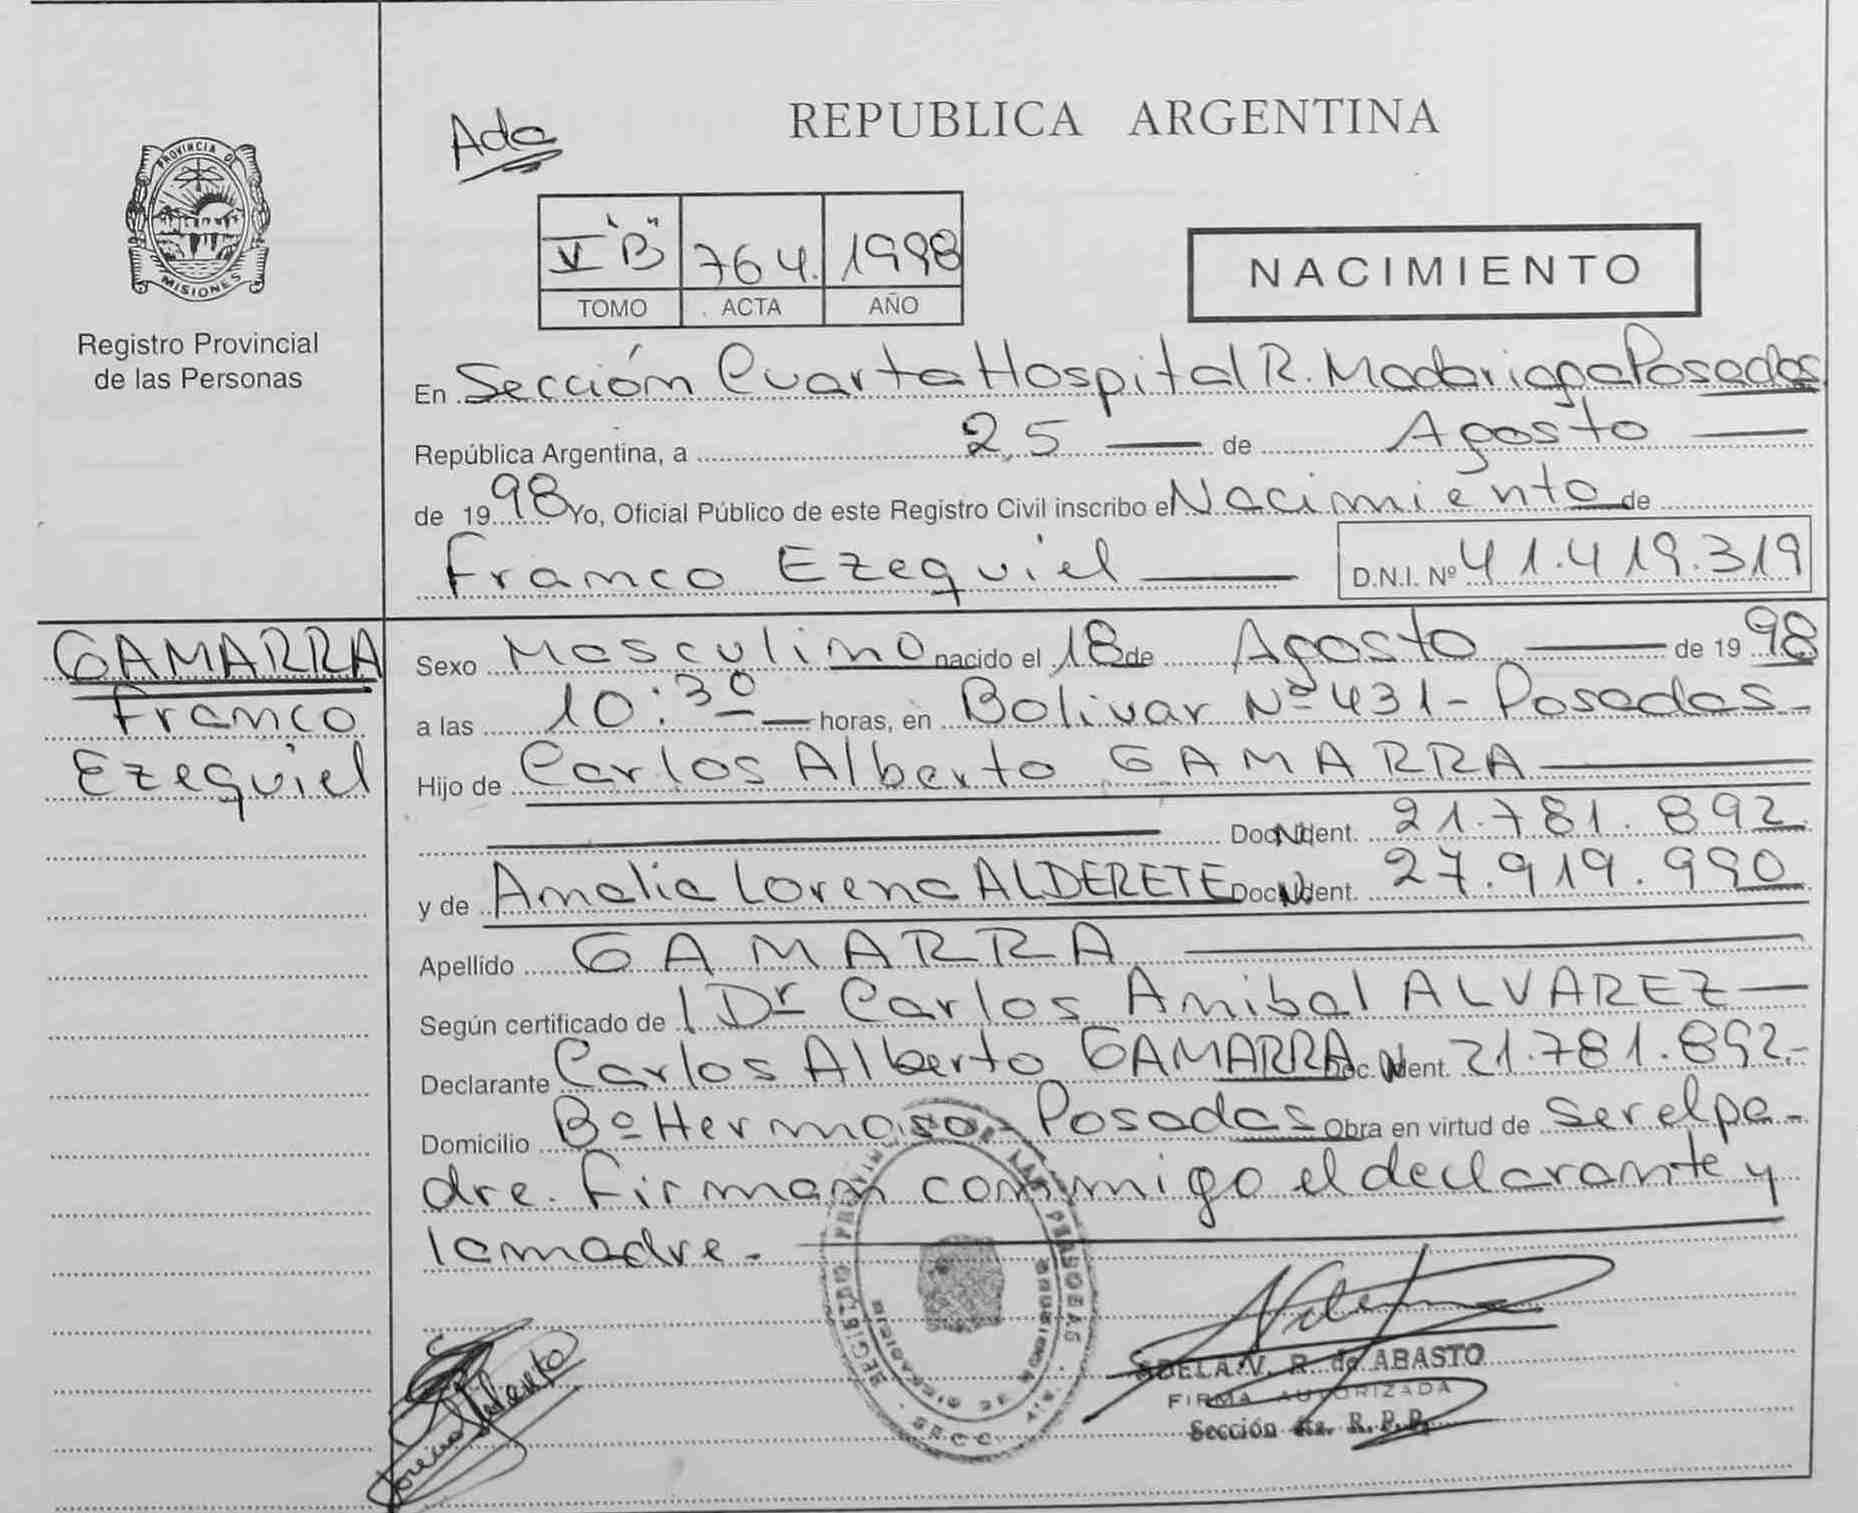 PROVINCIA DE
MISIONES
Registro Provincial
de las Personas
Ada
REPUBLICA ARGENTINA
V "B" 764. 1998
TOMO ACTA AÑO
NACIMIENTO
En Sección Cuarta Hospital R. Madariaga Posadas
República Argentina, a 25 de Agosto
de 1998 Yo, Oficial Público de este Registro Civil inscribo el Nacimiento de
Franco Ezequiel D.N.I. Nº 41.419.319
GAMARRA
Franco
Ezequiel
Sexo Masculino nacido el 18 de Agosto de 1998
a las 10:30 horas, en Bolivar Nº 431 - Posadas -
Hijo de Carlos Alberto GAMARRA
Doc. Ident. 21.781.892
y de Amalia Lorena ALDERETE Doc. Ident. 27.919.990
Apellido GAMARRA
Según certificado del Dr Carlos Anibal ALVAREZ
Declarante Carlos Alberto GAMARRA Doc. Ident. 21.781.892.-
Domicilio Bº Hermoso - Posadas Obra en virtud de ser el pa-
dre. Firman conmigo el declarante y
la madre.
ADELA V. R. de ABASTO
FIRMA AUTORIZADA
Sección 4ta. R. P. P.